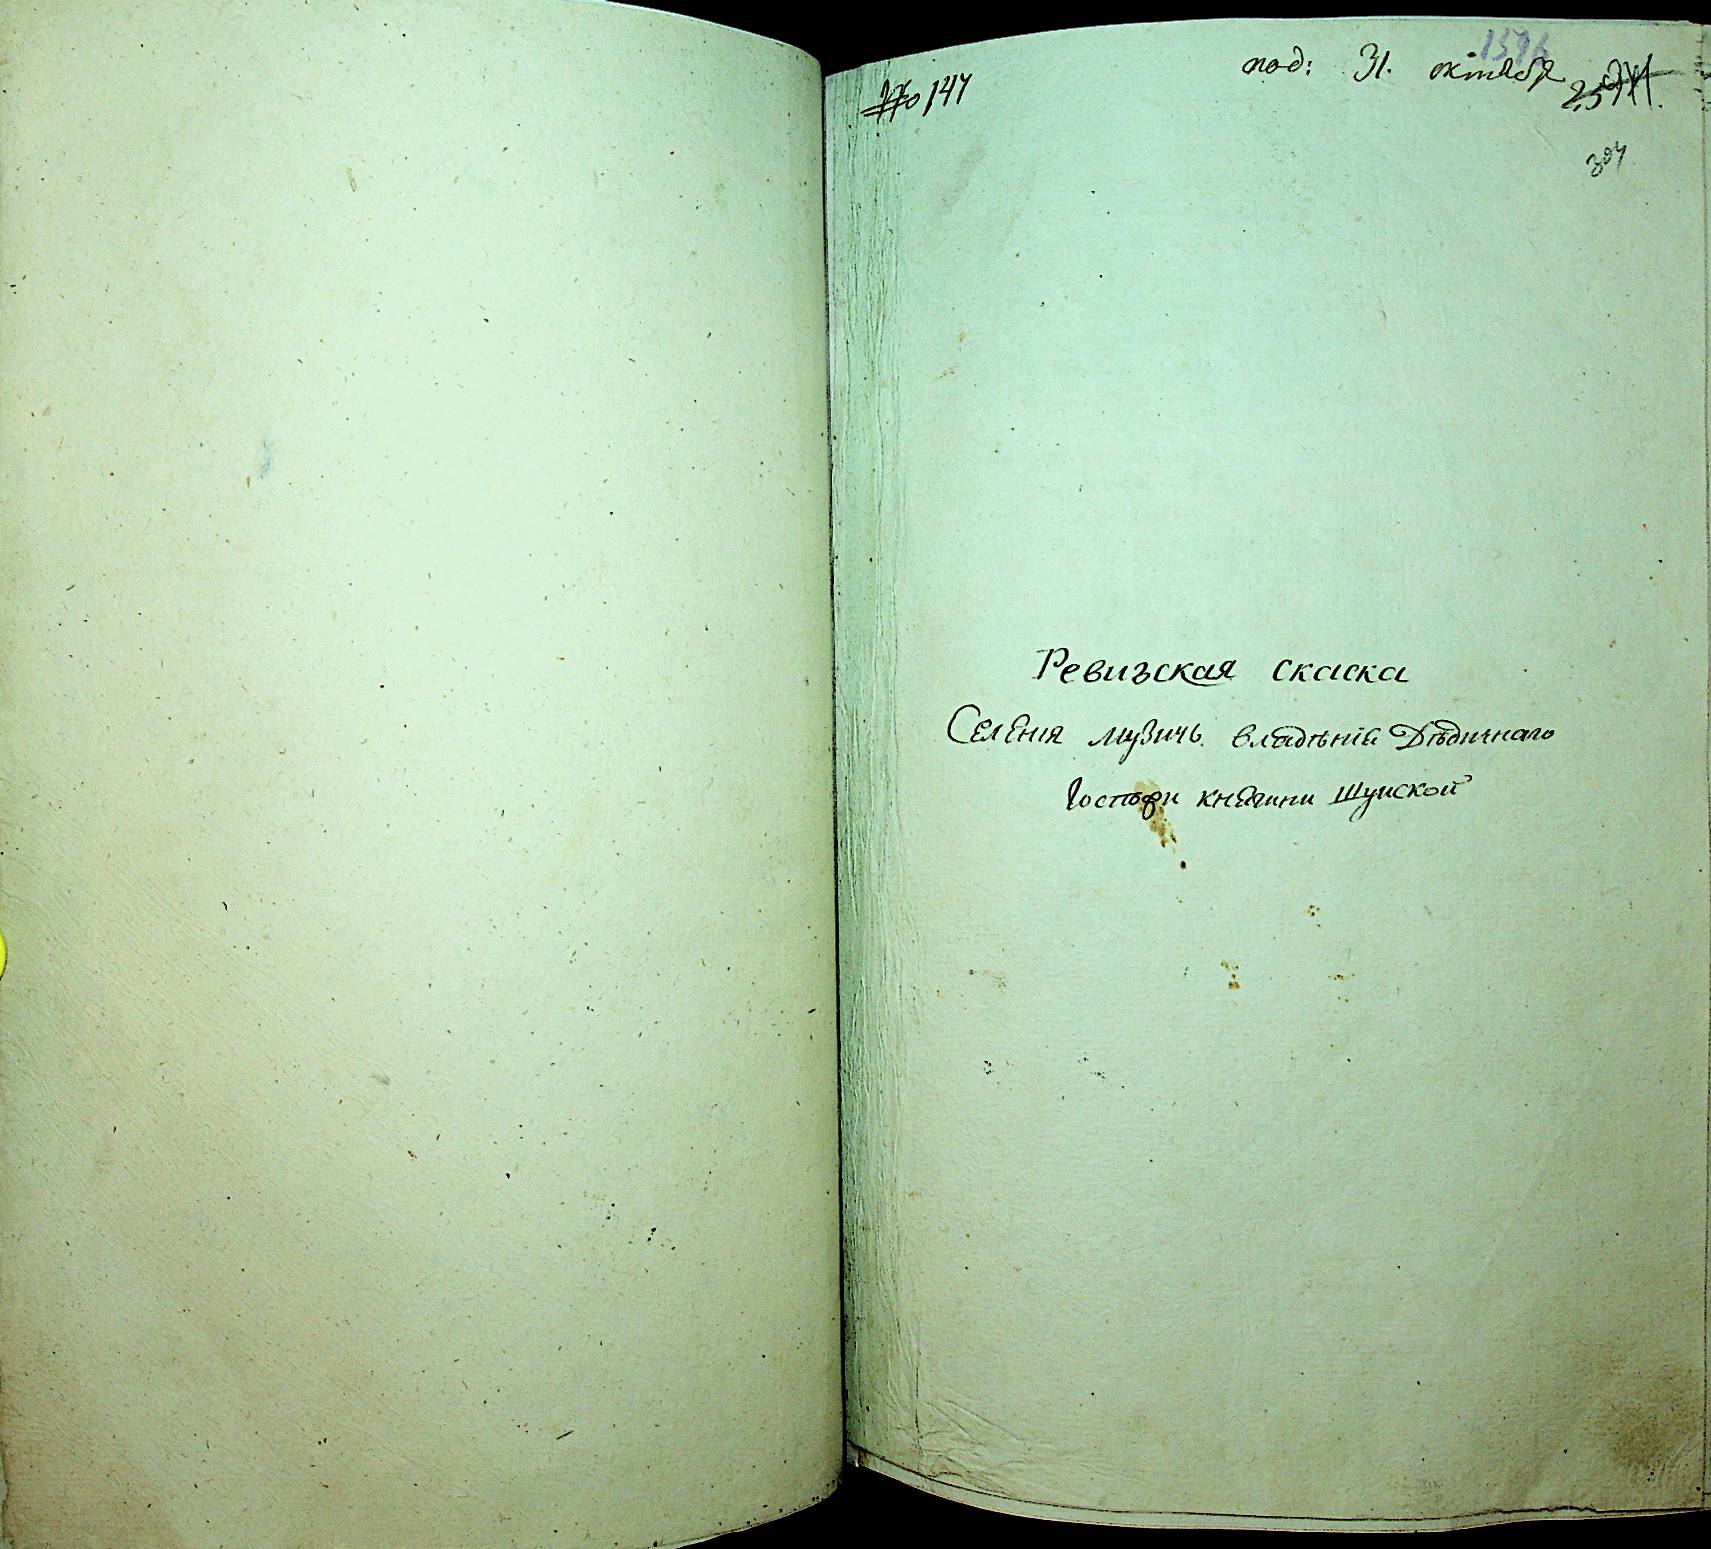 № 147
под: 31. октября
1576
304
Ревизская скаска
Селения Музичь владѣнїй Дѣдичнаго
Госпожи княгини Шуйской